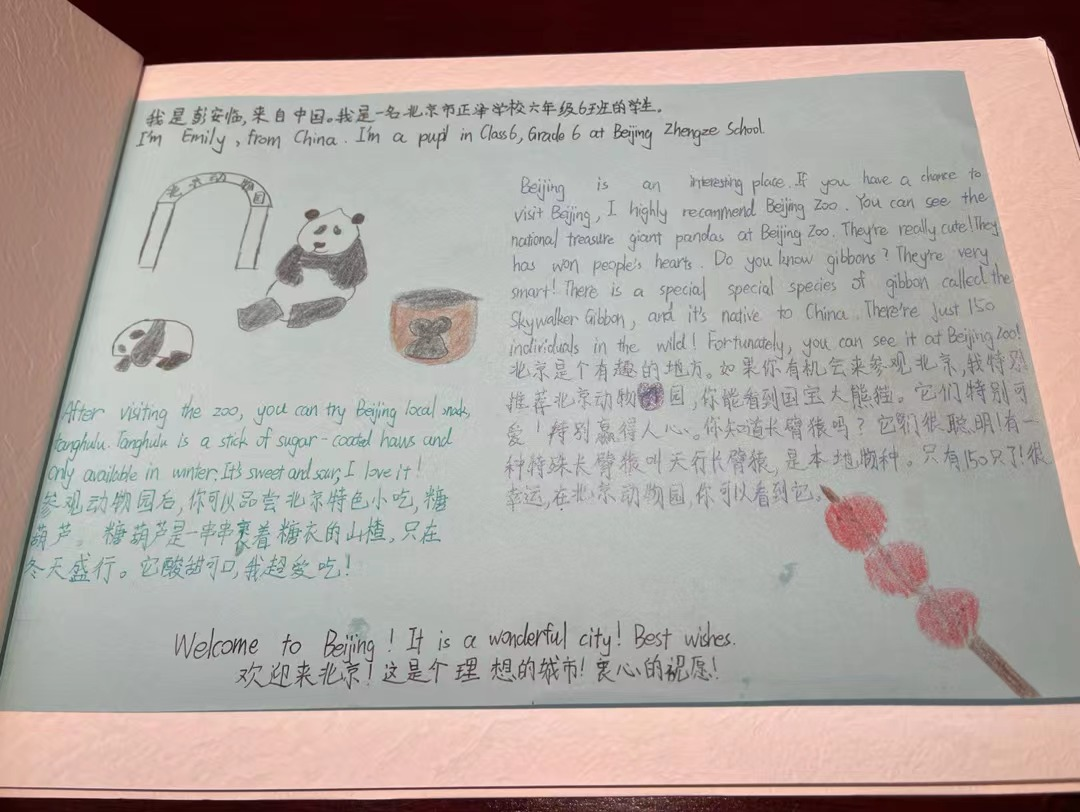 我是彭安临,来自中国。我是一名北京市正泽学校六年级6班的学生。
I'm Emily, from China. I'm a pupil in Class6, Grade 6 at Beijing Zhengze School.
北京动物园
Beijing is an interesting place. If you have a chance to
visit Beijing, I highly recommend Beijing Zoo. You can see the
national treasure giant pandas at Beijing Zoo. They're really cute! They
has won people's hearts. Do you know gibbons? They're very
smart! There is a special special species of gibbon called the
Skywalker Gibbon, and it's native to China. There're just 150
individuals in the wild! Fortunately, you can see it at Beijing Zoo!
北京是个有趣的地方。如果你有机会来参观北京,我特别
推荐北京动物园,你能看到国宝大熊猫。它们特别可
爱!特别赢得人心。你知道长臂猿吗?它们很聪明!有一
种特殊长臂猿叫天行长臂猿,是本地物种。只有150只了!很
幸运,在北京动物园,你可以看到它。
After visiting the zoo, you can try Beijing local snak,
tanghulu. Tanghulu is a stick of sugar-coated haws and
only available in winter. It's sweet and sour, I love it!
参观动物园后,你可以品尝北京特色小吃,糖
葫芦。糖葫芦是一串串裹着糖衣的山楂,只在
冬天盛行。它酸甜可口,我超爱吃!
Welcome to Beijing! It is a wonderful city! Best wishes.
欢迎来北京!这是个理想的城市!衷心的祝愿!